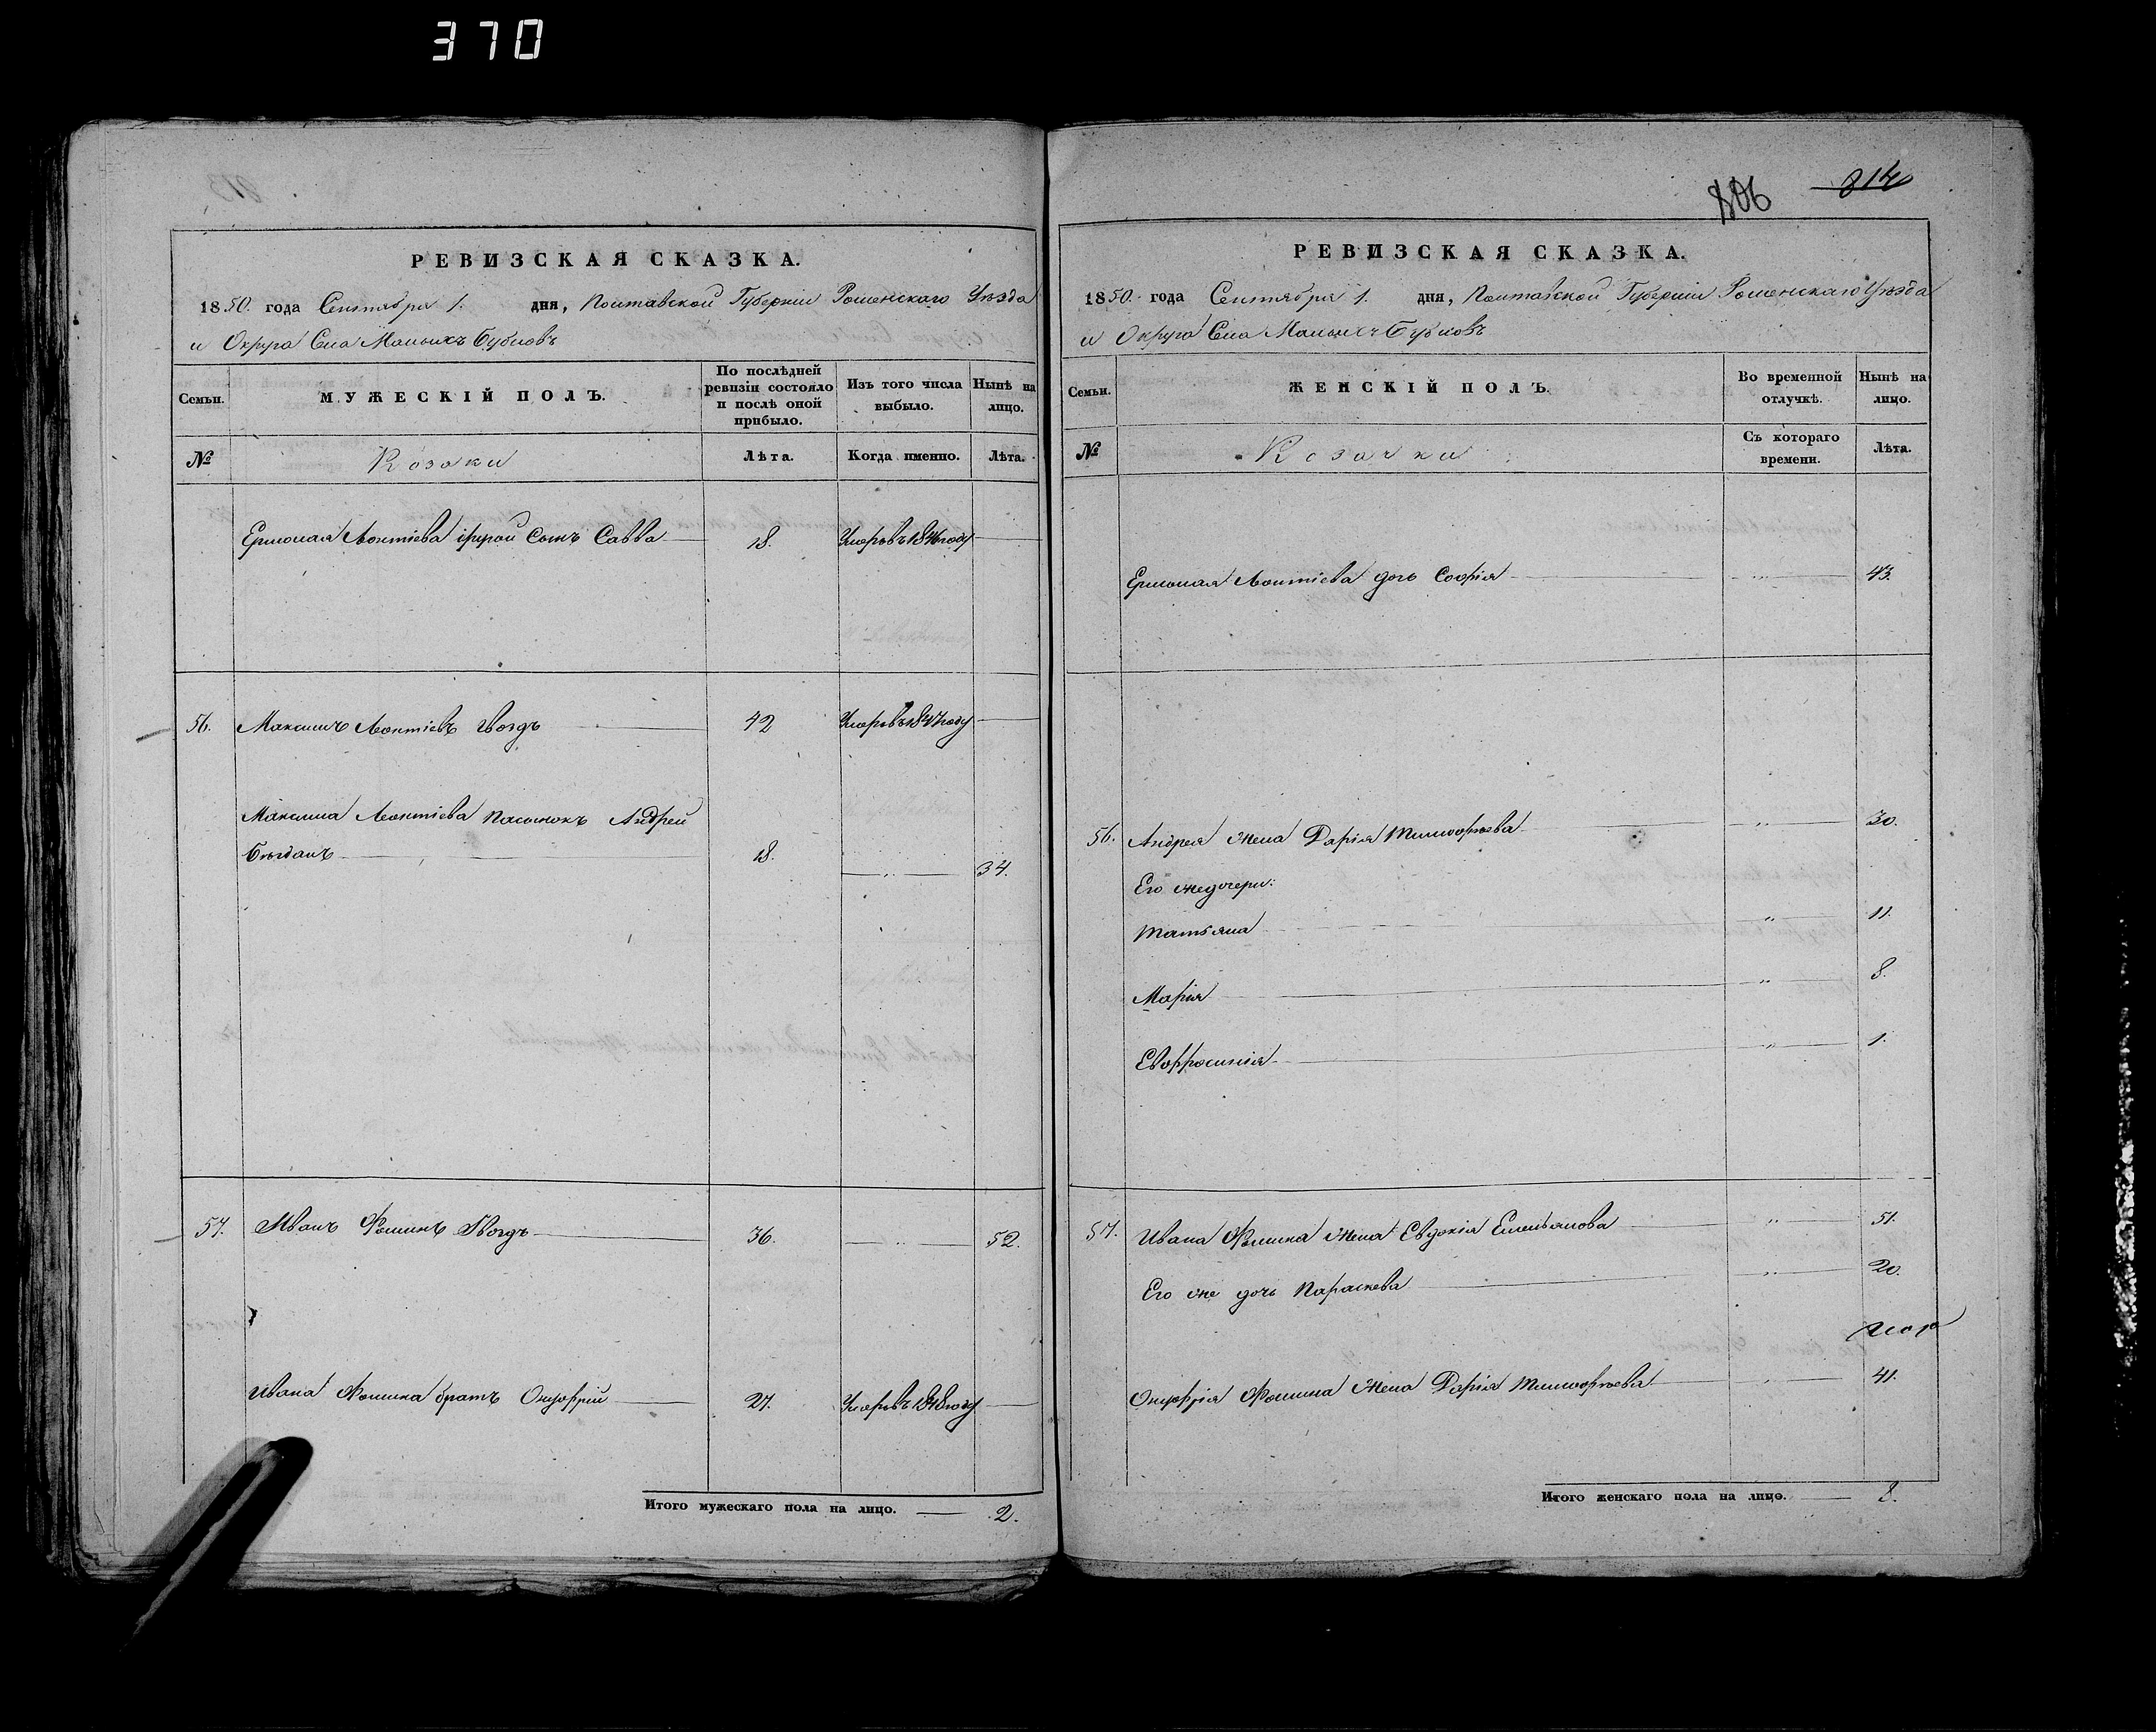 370
РЕВИЗСКАЯ СКАЗКА.
1850. года Сентября 1. дня, Полтавской Губерніи Роменскаго Уѣзда
и Округа Села Малыхъ Бубновъ
Семьи.
МУЖЕСКІЙ ПОЛЪ.
По послѣдней ревизіи состояло и послѣ оной прибыло.
Изъ того числа выбыло.
Нынѣ на лицо.
№
Козаки
Лѣта.
Когда именно.
Лѣта.
Ермолая Леонтіева сынъ Савва 18. Умеръ въ 1846 году
56. Максимъ Леонтіевъ Гвоздь 42 Умеръ въ 1847 году
Максима Леонтіева пасынокъ Андрей
Богданъ 18. 34.
57. Иванъ Фоминъ Гвоздь 36. 52.
Ивана Фомина братъ Онуфрій 27. Умеръ въ 1848 году
Итого мужескаго пола на лицо. 2.
806 814
РЕВИЗСКАЯ СКАЗКА.
1850. года Сентября 1. дня, Полтавской Губерніи Роменскаго Уѣзда
и Округа Села Малыхъ Бубновъ
Семьи.
ЖЕНСКІЙ ПОЛЪ.
Во временной отлучкѣ.
Нынѣ на лицо.
№
Козачки
Съ котораго времени.
Лѣта.
Ермолая Леонтіева дочь Софія 43.
56. Андрея жена Дарія Тимофѣева 30.
Его же дочери:
Татьяна 11.
Марія 8.
Евфросинія 1.
57. Ивана Фомина жена Евдокія Емельянова 51.
Его же дочь Параскева 20.
Онуфрія Фомина жена Дарія Тимофѣева 41.
Итого женскаго пола на лицо. 8.